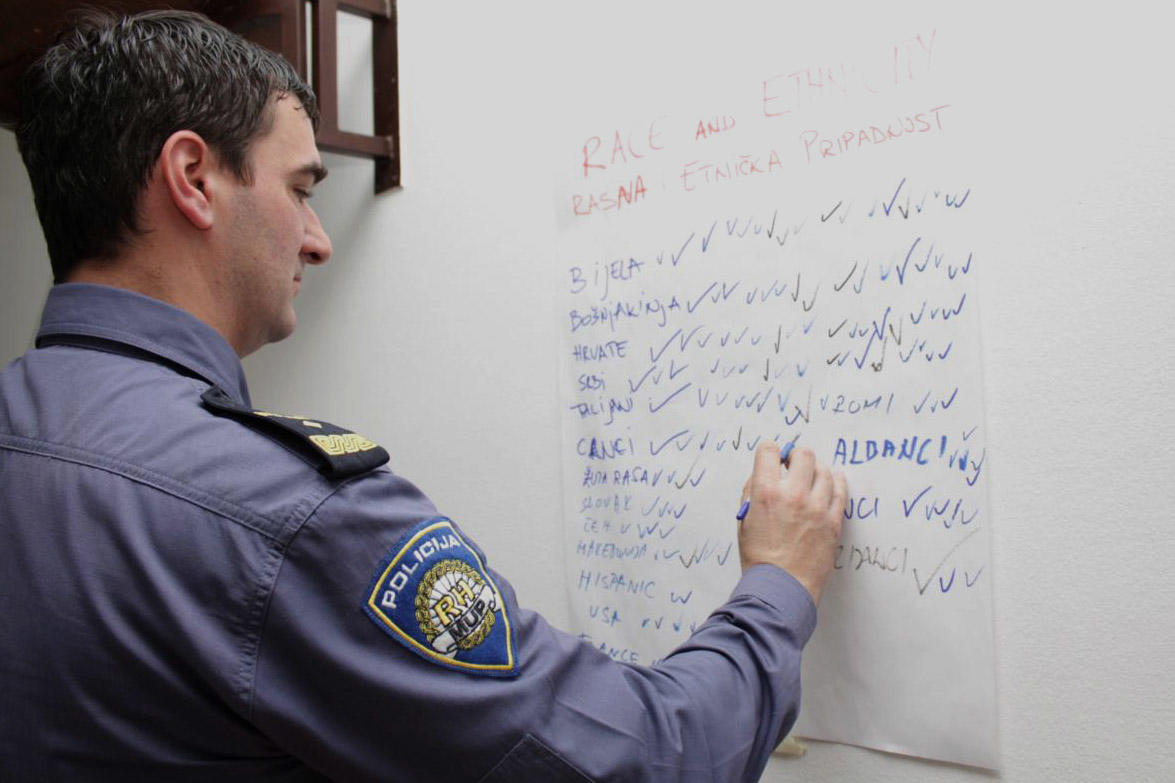 RACE AND ETHNICITY
RASNA I ETNIČKA PRIPADNOST
BIJELA
BOŠNJAKINJA
HRVATE
SRBI
TALIJANI
ROMI
CANCI
ALBANCI
ŽUTA RASA
SLOVAK
NCI
ČEH
MAKEDONIJA
HISPANIC
USA
POLICIJA
RH
MUP